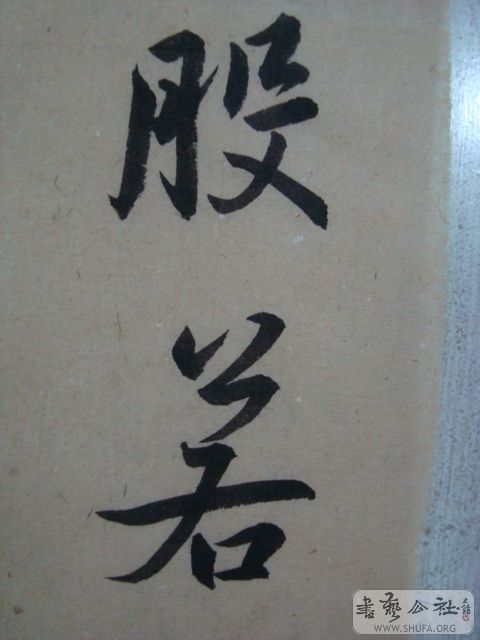 股
若
書藝公社
WWW.SHUFA.ORG